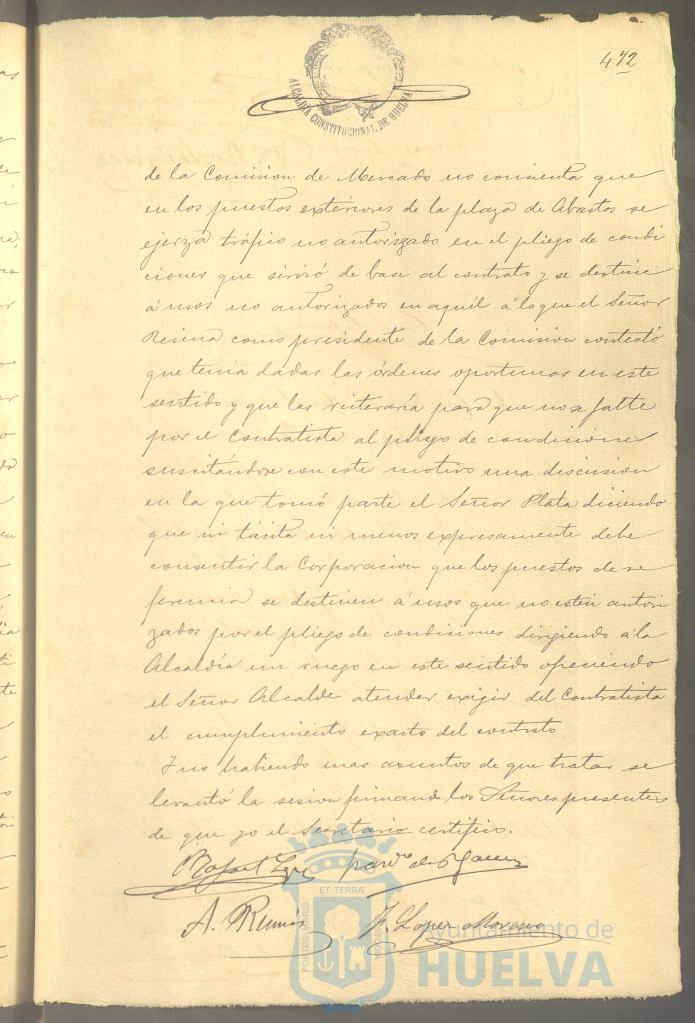 472
ALCALDÍA CONSTITUCIONAL DE HUELVA
de la Comision de Mercado no consienta que
en los puestos exteriores de la plaza de Abastos se
ejerza tráfico no autorizado en el pliego de condi
ciones que sirvió de base al contrato y se destine
á usos no autorizados en aquél á lo que el Señor
Resina como presidente de la Comision contestó
que tenia dadas las órdenes oportunas en este
sentido y que las reiteraría para que no se falte
por el Contratista al pliego de condiciones
suscitándose con este motivo una discusion
en la que tomó parte el Señor Plata diciendo
que ni tásita ni menos expresamente debe
consentir la Corporacion que los puestos de re
ferencia se destinen á usos que no estén autori
zados por el pliego de condiciones dirigiendo á la
Alcaldía un ruego en este sentido ofreciendo
el Señor Alcalde atender exigir del Contratista
el cumplimiento exacto del contrato
Y no habiendo mas asuntos de que tratar se
levantó la sesion firmando los Señores presentes
de que yo el Secretario certifico.
Rafael
A.
F. Lopez Moreno
PORTUS MARIS ET TERRÆ CUSTODIA
Ayuntamiento de
HUELVA